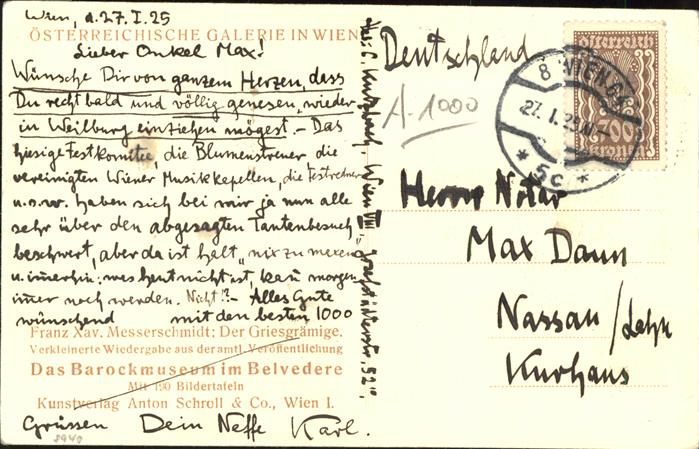 Wien, d. 27. I. 25
ÖSTERREICHISCHE GALERIE IN WIEN
Lieber Onkel Max!
Wünsche Dir von ganzem Herzen, dass
Du recht bald und völlig genesen, wieder
in Weilburg einziehen mögest. – Das
hiesige Festkomitee, die Blumenstreuer, die
vereinigten Wiener Musikkapellen, die Festredner
u.s.w. haben sich bei mir ja nun alle
sehr über den abgesagten Tantenbesuch
beschwert, aber da ist halt „nix zu
u. immerhin: was heut nicht ist, kann morgen
immer noch werden. Nicht!? – Alles Gute
wünschend mit den besten 1000
Franz Xav. Messerschmidt: Der Griesgrämige.
Verkleinerte Wiedergabe aus der amtl. Veröffentlichung
Das Barockmuseum im Belvedere
Mit 190 Bildertafeln
Kunstverlag Anton Schroll & Co., Wien I.
Grüssen Dein Neffe Karl.
8940
Wien VIII, Josefstädterstr. 52
Deutschland
A-1000
8 WIEN 64
27. I. 25
* 5c *
Österreich
500
Kronen
Herrn Notar
Max Dann
Nassau / Lahn
Kurhaus